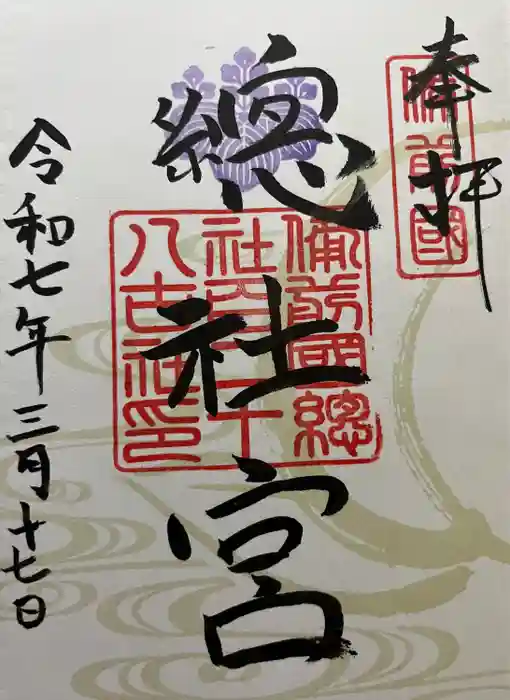 奉拝
備前國
總社宮
備前國總
社百二十
八古社印
令和七年三月十七日